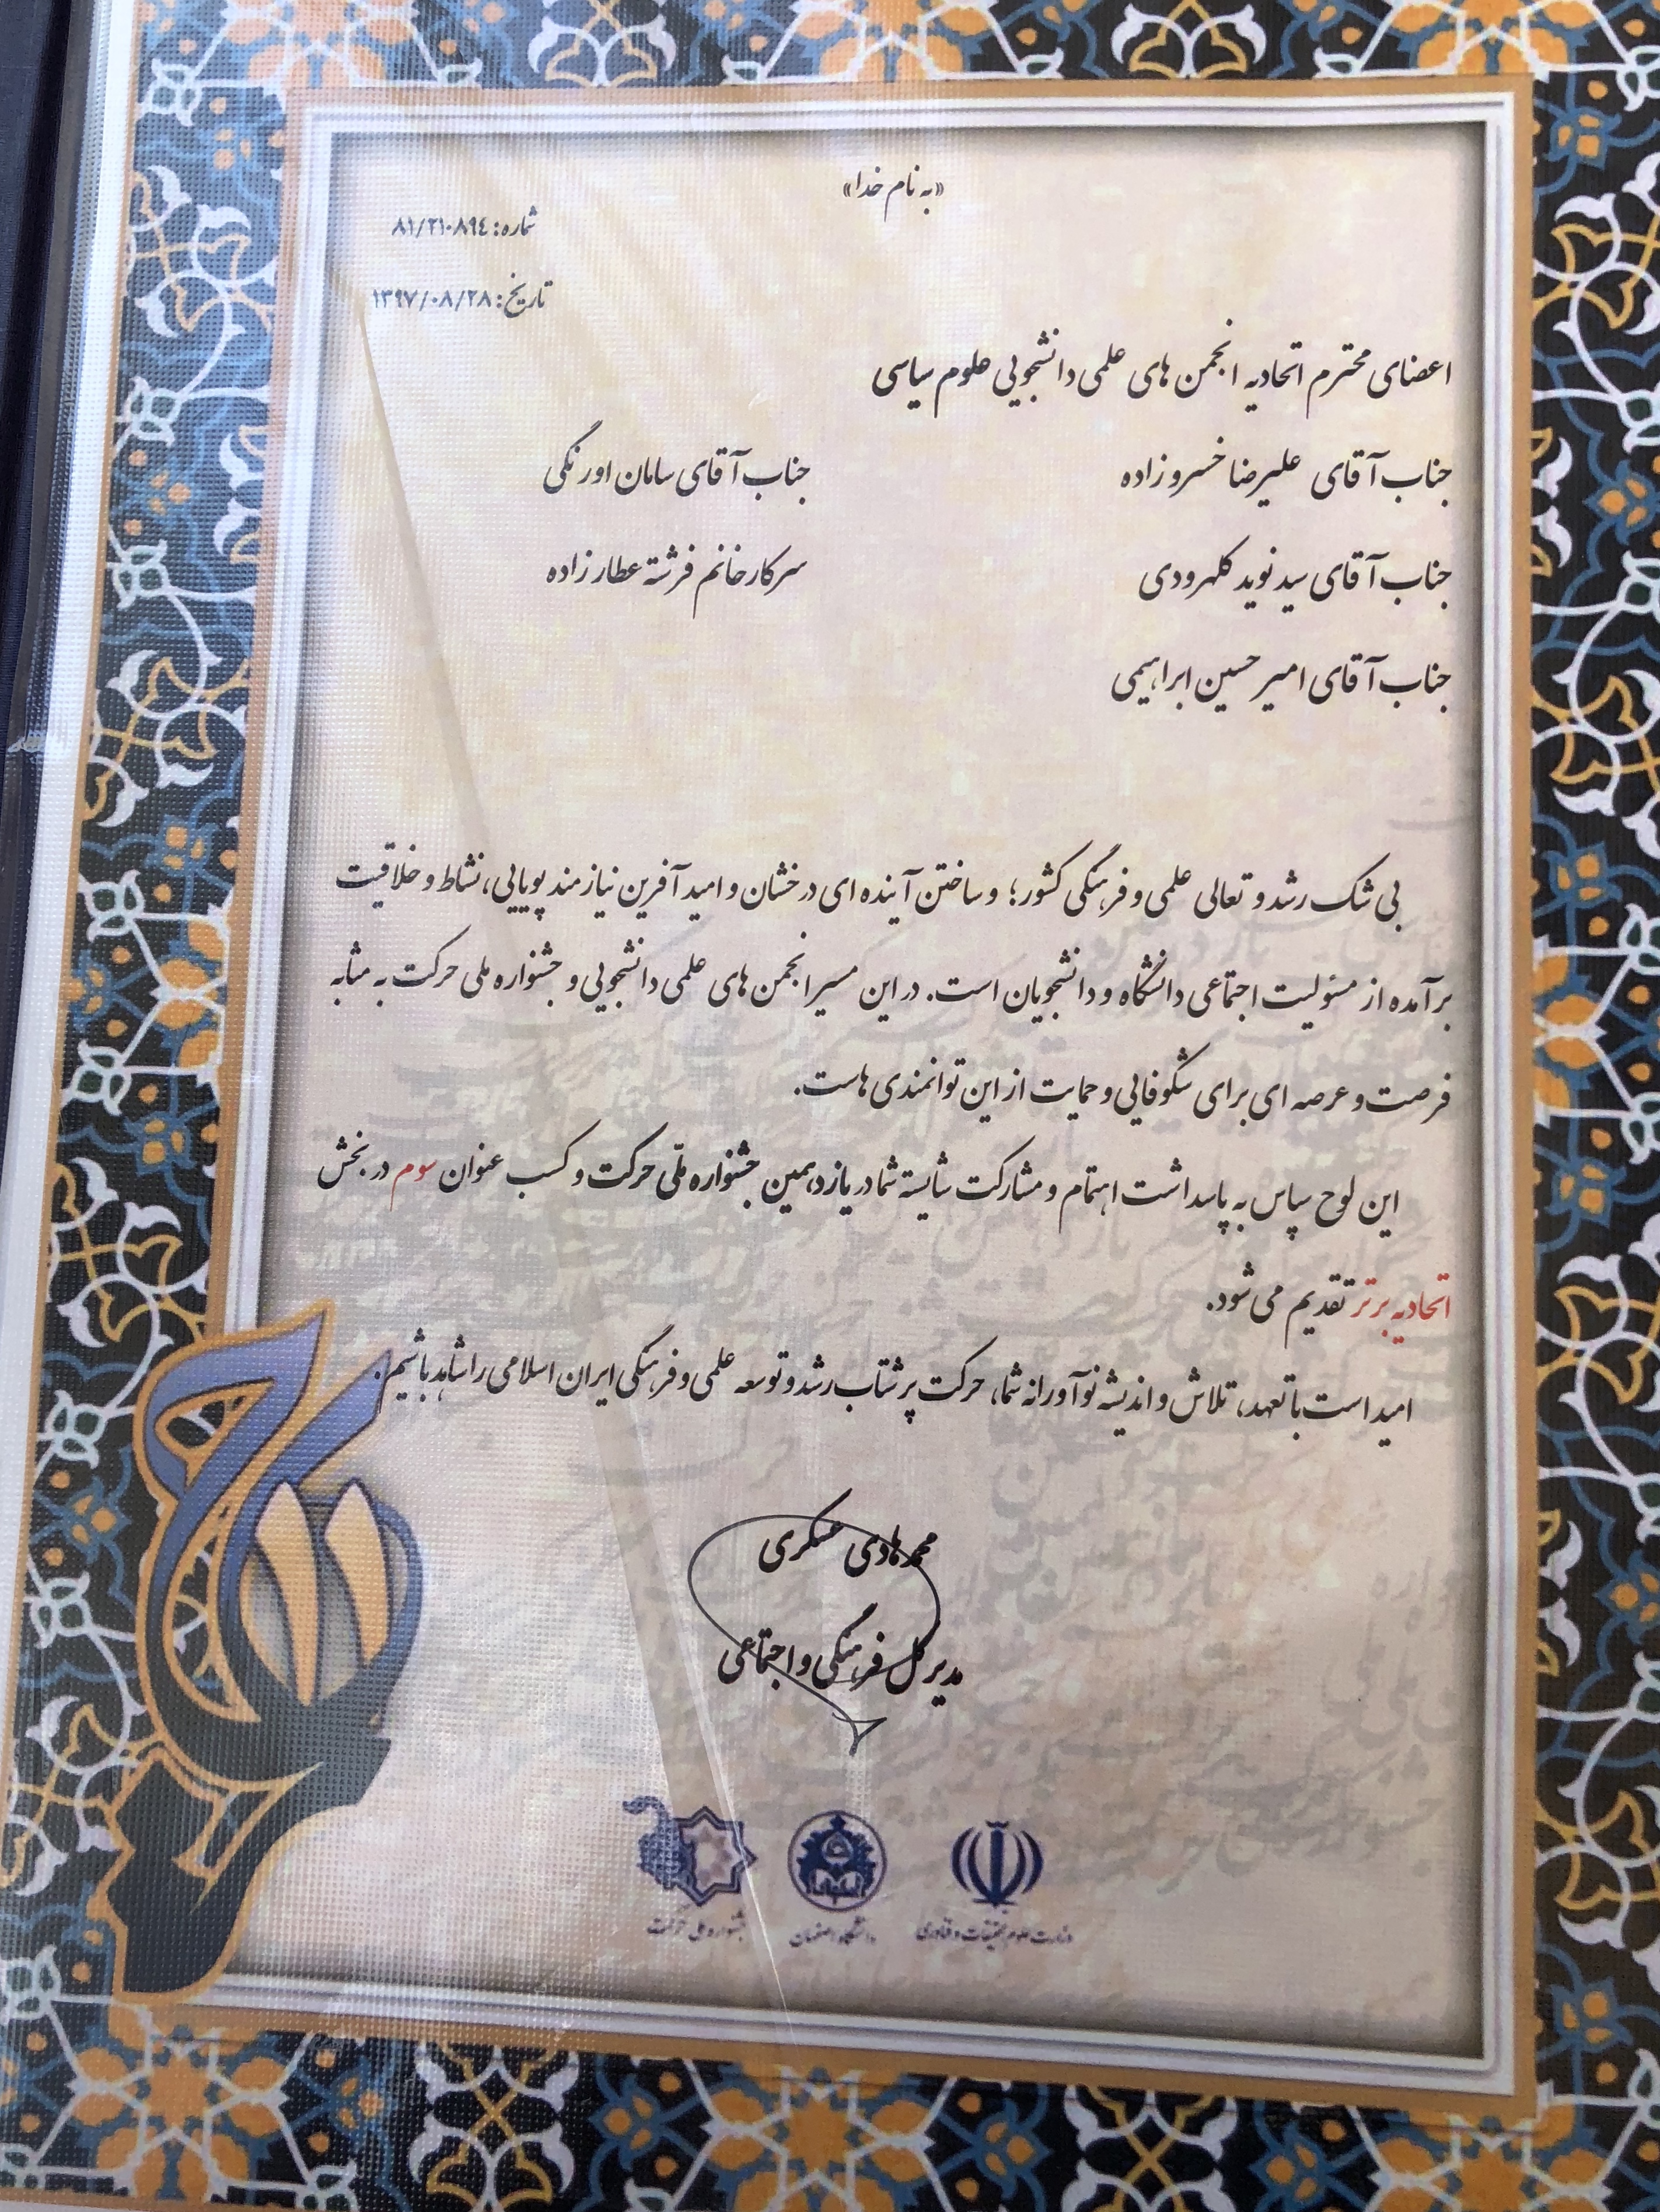 «به نام خدا»
شماره: ۸۱/۲۱۰۸۹٤
تاریخ: ۱۳۹۷/۰۸/۲۸
اعضای محترم اتحادیه انجمن های علمی دانشجویی علوم سیاسی
جناب آقای علیرضا خسروزاده جناب آقای سامان اورنگی
جناب آقای سید نوید کلهرودی سرکار خانم فرشته عطارزاده
جناب آقای امیر حسین ابراهیمی
بی شک رشد و تعالی علمی و فرهنگی کشور؛ و ساختن آینده ای درخشان و امید آفرین نیازمند پویایی، نشاط و خلاقیت
برآمده از مسئولیت اجتماعی دانشگاه و دانشجویان است. در این مسیر انجمن های علمی دانشجویی و جشنواره ملی حرکت به مثابه
فرصت و عرصه ای برای شکوفایی و حمایت از این توانمندی هاست.
این لوح سپاس به پاسداشت اهتمام و مشارکت شایسته شما در یازدهمین جشنواره ملّی حرکت و کسب عنوان سوم در بخش
اتحادیه برتر تقدیم می شود.
امید است با تعهد، تلاش و اندیشه نوآورانه شما، حرکت پرشتاب رشد و توسعه علمی و فرهنگی ایران اسلامی را شاهد باشیم.
محمد هادی عسکری
مدیر کل فرهنگی و اجتماعی
وزارت علوم، تحقیقات و فناوری
دانشگاه اصفهان
جشنواره ملی حرکت